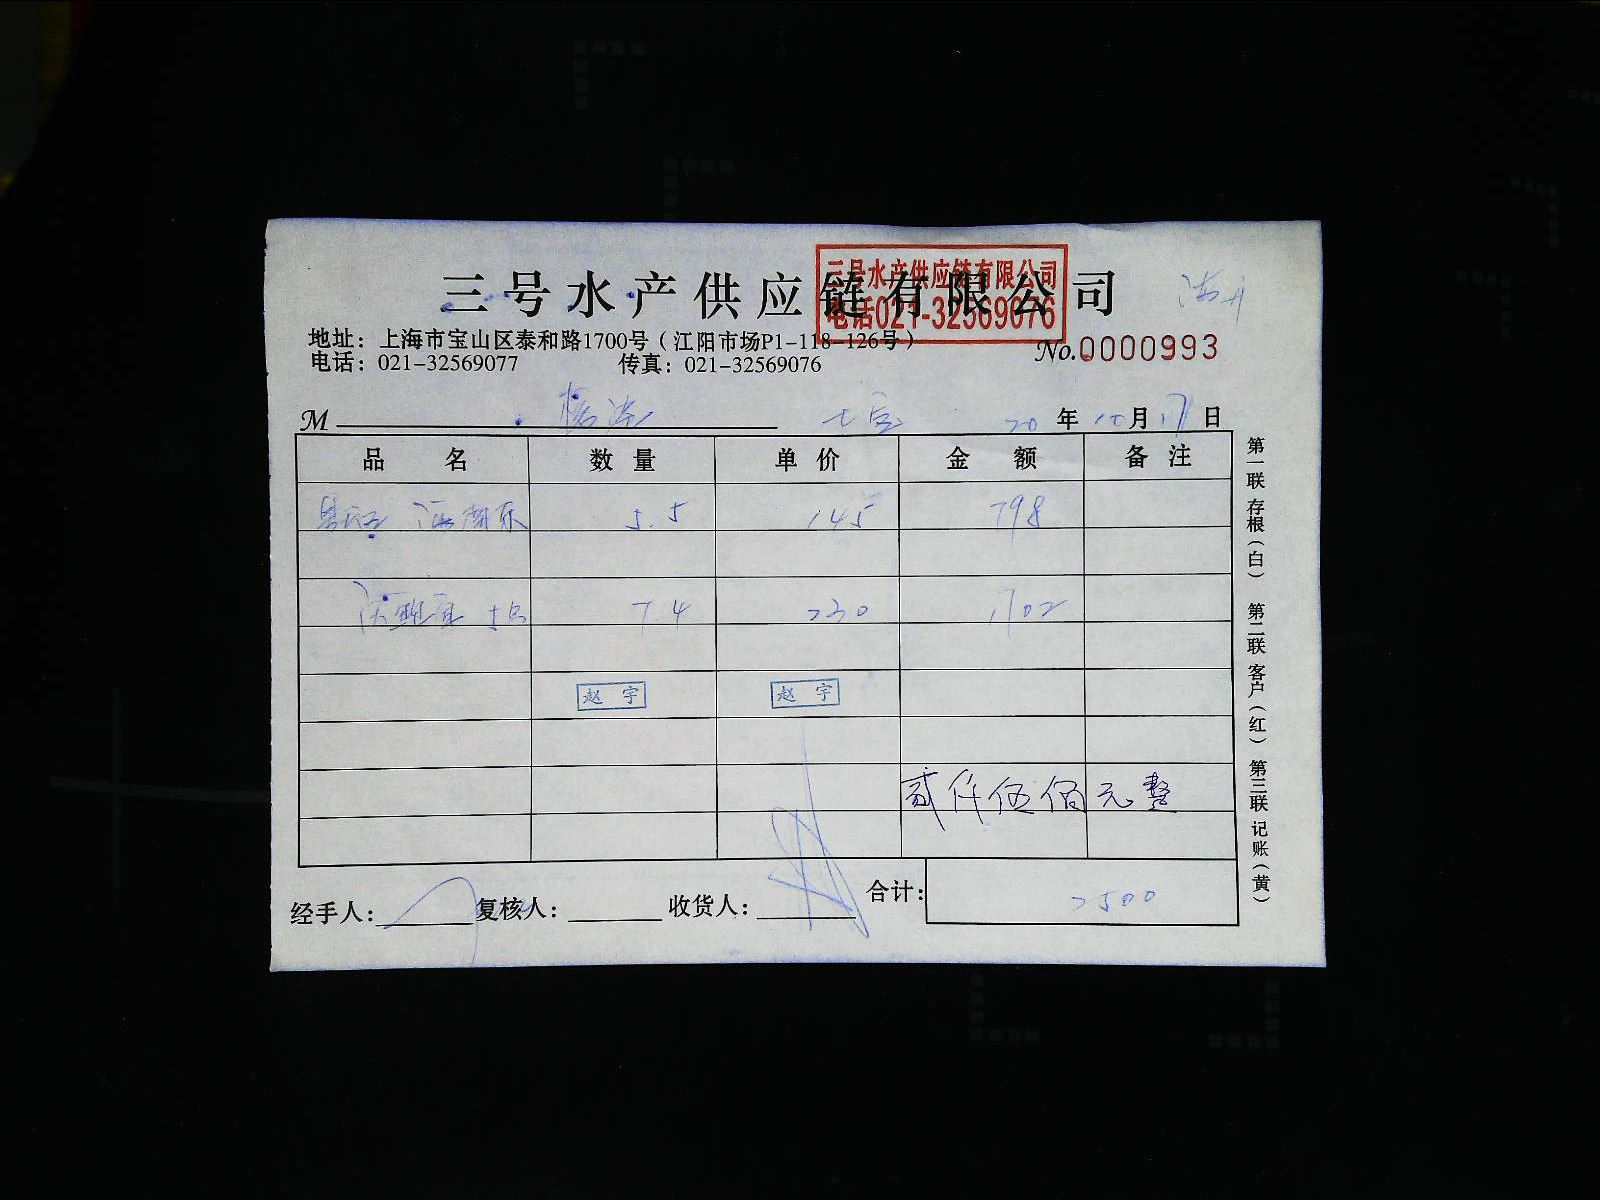 三号水产供应链有限公司
三号水产供应链有限公司
电话021-32569076
地址：上海市宝山区泰和路1700号（江阳市场P1-118-126号）
电话：021-32569077 传真：021-32569076
No.0000993
M 七宝 20年10月17日
品名 数量 单价 金额 备注
5.5 145 798
7.4 230 1702
赵宇 赵宇
贰仟伍佰元整
经手人： 复核人： 收货人： 合计： 2500
第一联存根（白） 第二联客户（红） 第三联记账（黄）